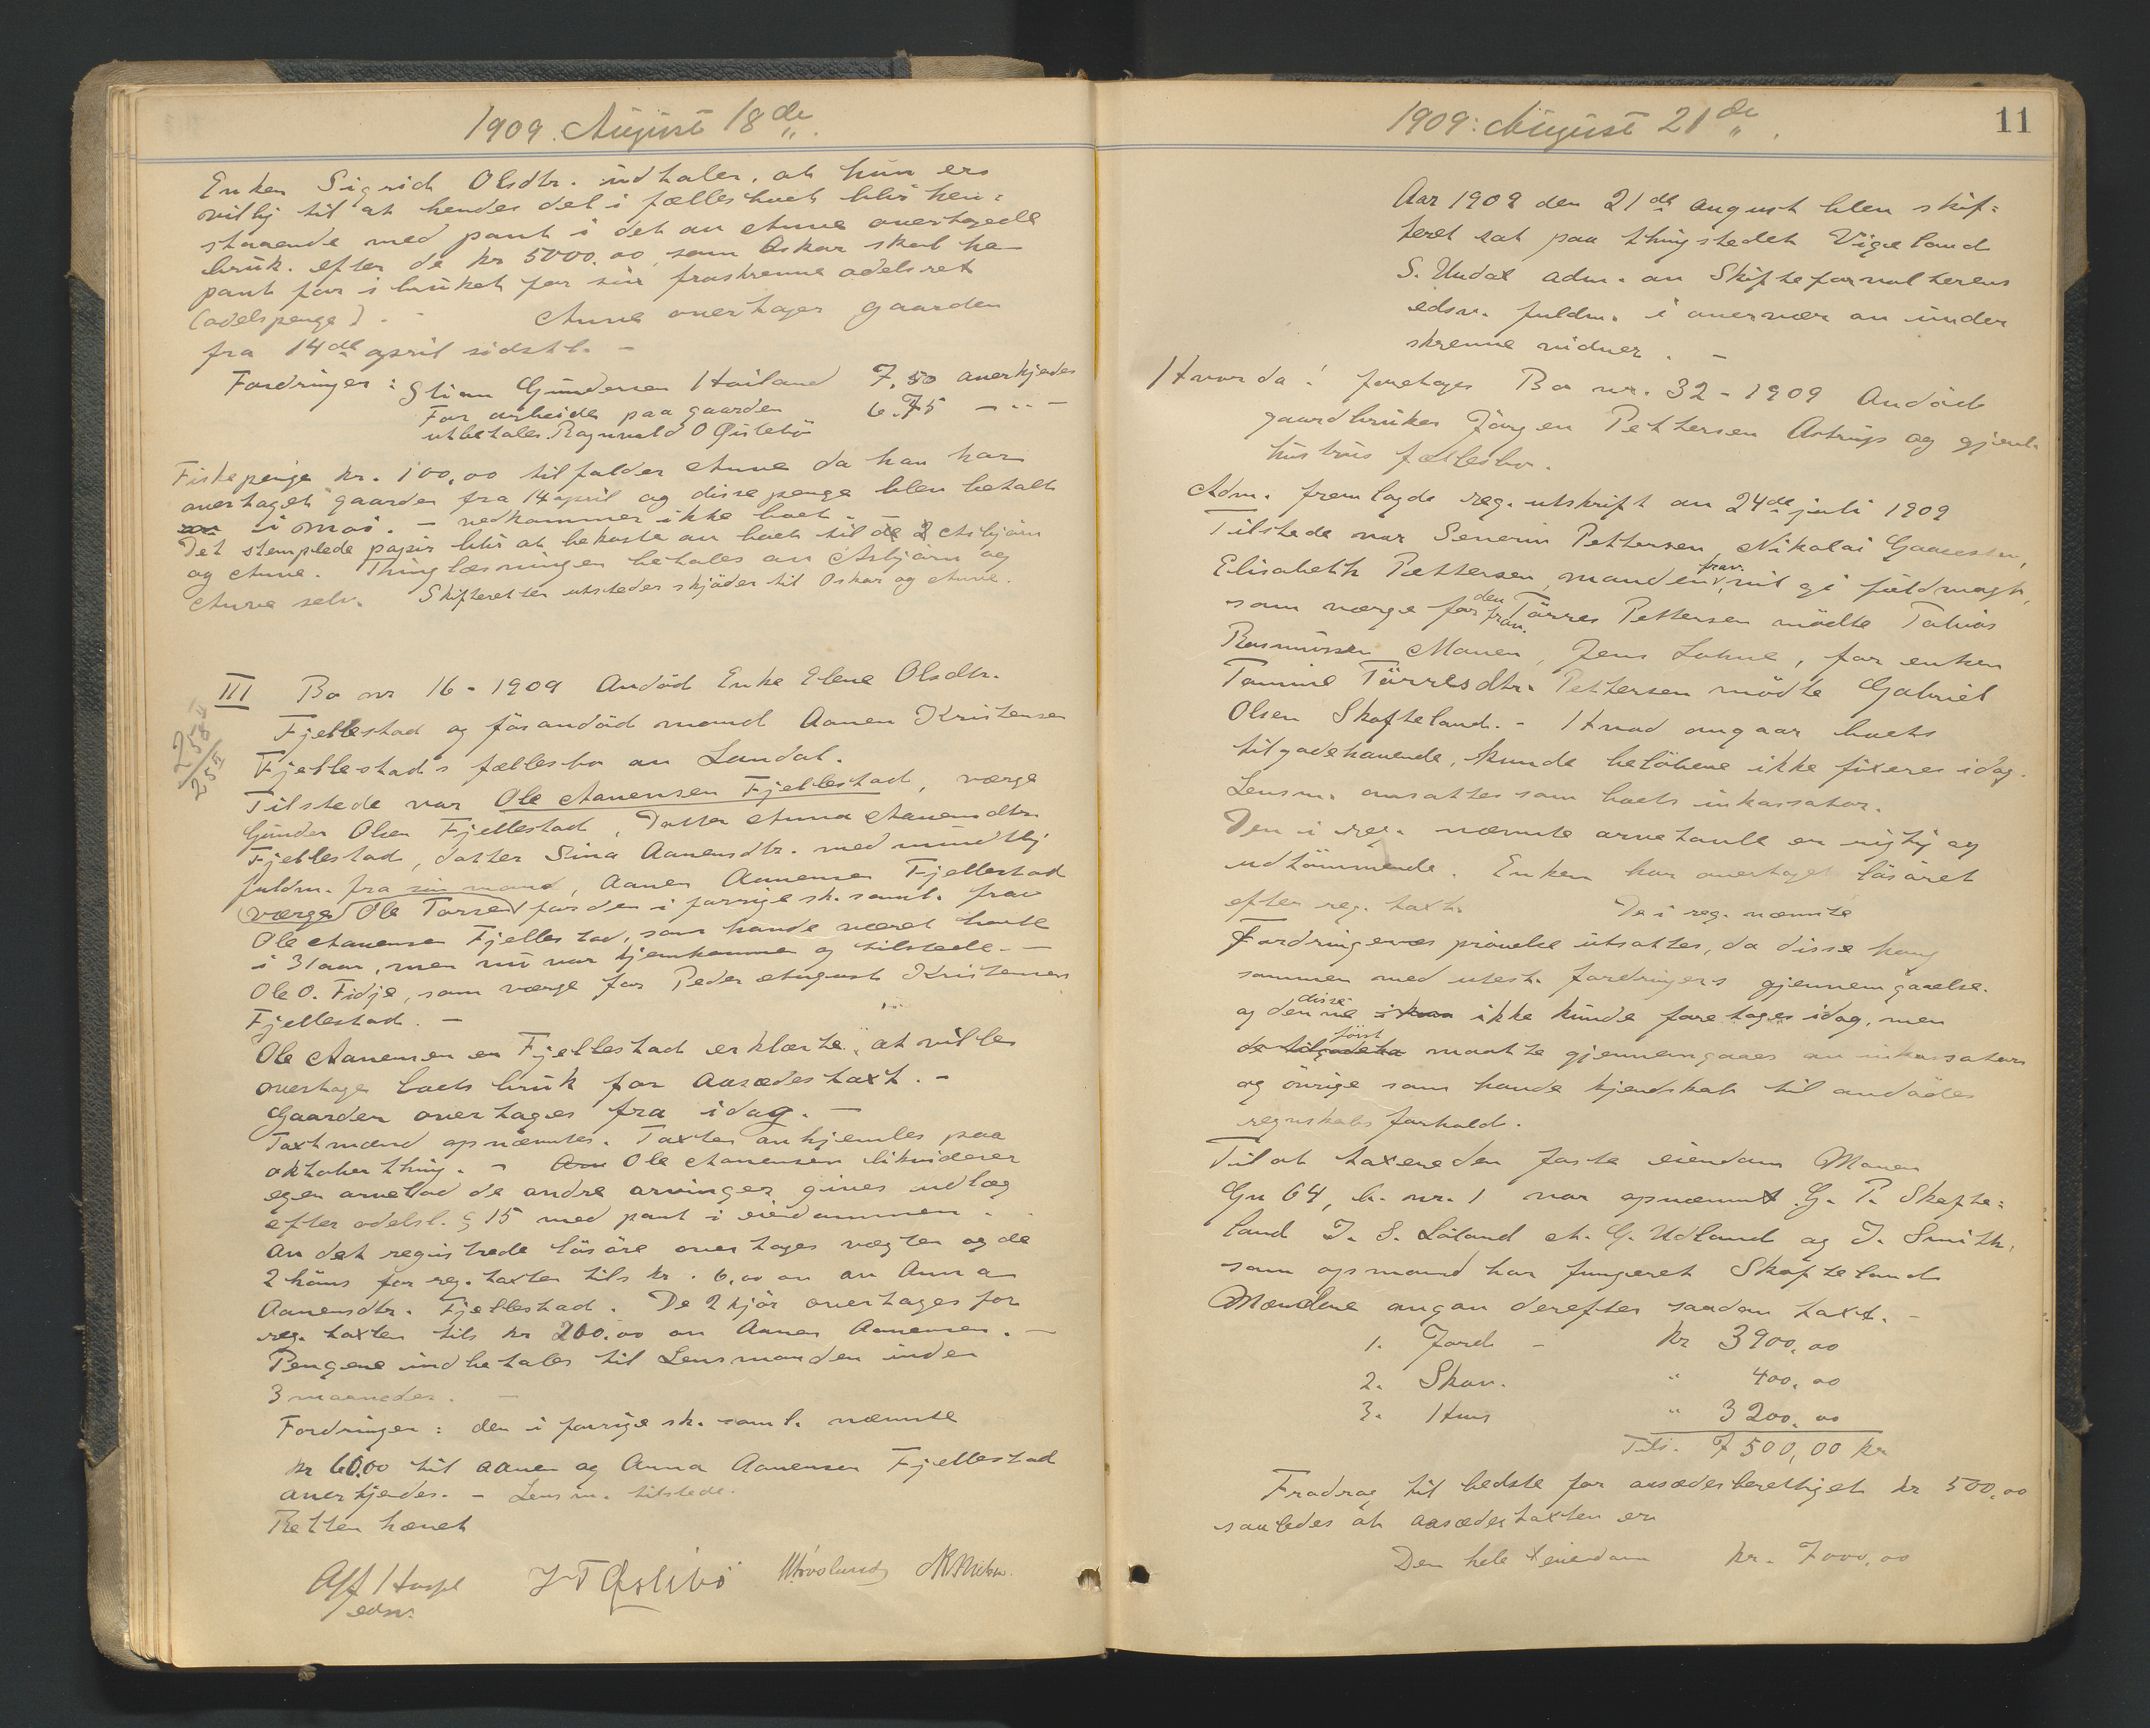 1909. August 18de
Enken Sigrid Olsdtr. udtaler, at hun er
villig til at hendes del i fællesboet blir hen-
staaende med pant i det av Anve overtagede
bruk. efter de kr 5000.00, som Oskar skal ha
pant for i bruket for sin fraskrevne odelsret
(odelspenge). - Anve overtager gaarden
fra 14de april sidstl. -
Fordringer: Stian Gundersen Høiland 7,50 anerkjendes
For arbeide paa gaarden 6.75 - " -
utbetales Ragnvald O Øislebø
Fiskepenge kr. 100,00 tilfalder Anve da han har
overtaget gaarden fra 14 april og disse penge blev betalt
i mai. - vedkommer ikke boet. -
Det stemplede papir blir at bekoste av boet til de 2 Asbjørn
og Anve. Thinglæsningen betales av Asbjørn og
Anve selv. Skifteretten utsteder skjøder til Oskar og Anve.
III Bo nr 16 - 1909 Avdød Enke Elene Olsdtr.
Fjellestad og før avdød mand Aanen Kristensen
Fjellestads fællesbo av Laudal.
258 II
25 II
Tilstede var Ole Aanensen Fjellestad, værge
Gunder Olsen Fjellestad, Datter Anna Aanensdtr
Fjellestad, datter Sina Aanensdtr. med mundtlig
fuldm. fra sin mand, Aanen Aanensen Fjellestad
(værge Ole Torsen) for den i forrige sk. saml. frav
Ole Aanensen Fjellestad, som havde været borte
i 31 aar, men nu var hjemkommen og tilstede. -
Ole O. Fidje, som værge for Peder August Kristensen
Fjellestad. -
Ole Aanensen Fjellestad erklærte, at ville
overtage boets bruk for Aasædestaxt. -
Gaarden overtages fra idag. -
Taxtmænd opnævntes. Taxten avhjemles paa
oktoberthing. - Ole Aanensen likviderer
egen arvelod de andre arvinger gives udlæg
efter odelsl. § 15 med pant i eiendommen.
Av det registrede løsøre overtages vægten og de
2 høns for reg. taxten tils kr. 6,00 av Anna
Aanensdtr. Fjellestad. De 2 kjør overtages for
reg. taxten tils kr 200.00 av Aanen Aanensen. -
Pengene indbetales til Lensmanden inden
3 maaneder. -
Fordringer: den i forrige sk. saml. nævnte
kr 60.00 til Aanen og Anna Aanensen Fjellestad
anerkjendes. - Lensm. tilstede.
Retten hævet
J T Øslebø
edsv.
1909: August 21de
11
Aar 1909 den 21de august blev skif-
teret sat paa thingstedet Vigeland
S. Undal adm. av Skifteforvalterens
edsv. fuldm. i overvær av under
skrevne vidner. -
Hvorda: foretoges Bo nr. 32 - 1909 Avdød
gaardbruker Jørgen Pettersen Astrup og gjenl.
hustrus fællesbo.
Adm. fremlagde reg. utskrift av 24de juli 1909
Tilstede var Severin Pettersen, Nikolai Gaasesten,
Elisabeth Pettersen, manden frav. vil gi fuldmagt,
som værge for den frav. Tørres Pettersen mødte Tobias
Rasmussen Manen, Jens Lohne, for enken
Tomine Tørresdtr. Pettersen mødte Gabriel
Olsen Skofteland. - Hvad angaar boets
tilgodehavende, kunde beløbene ikke fixeres idag.
Lensm. ansattes som boets inkassator.
Den i reg. nævnte arvetavle er rigtig og
udtømmende. Enken har overtaget løsøret
efter reg. taxt. De i reg. nævnte
Fordringers prøvelse utsattes, da disse hang
sammen med utest. fordringers gjennemgaaelse.
og disse ikke kunde foretages idag, men
først maatte gjennemgaaes av inkassator
og øvrige som havde kjendskab til avdødes
regnskabs forhold.
Til at taxere den faste eiendom Manen
Gn 64, b. nr. 1 var opnævnt G. P. Skofte-
land J. S. Løland A. G. Udland og J. Smith,
som opmand har fungeret Skofteland
Mændene avgav derefter saadan taxt. -
1. Jord - kr 3900,00
2. Skov. " 400,00
3. Hus " 3200,00
Tils. 7500,00 kr
Fradrag til bedste for aasædesberettiget kr 500,00
saaledes at aasædestaxten er
Den hele eiendom kr. 7000,00